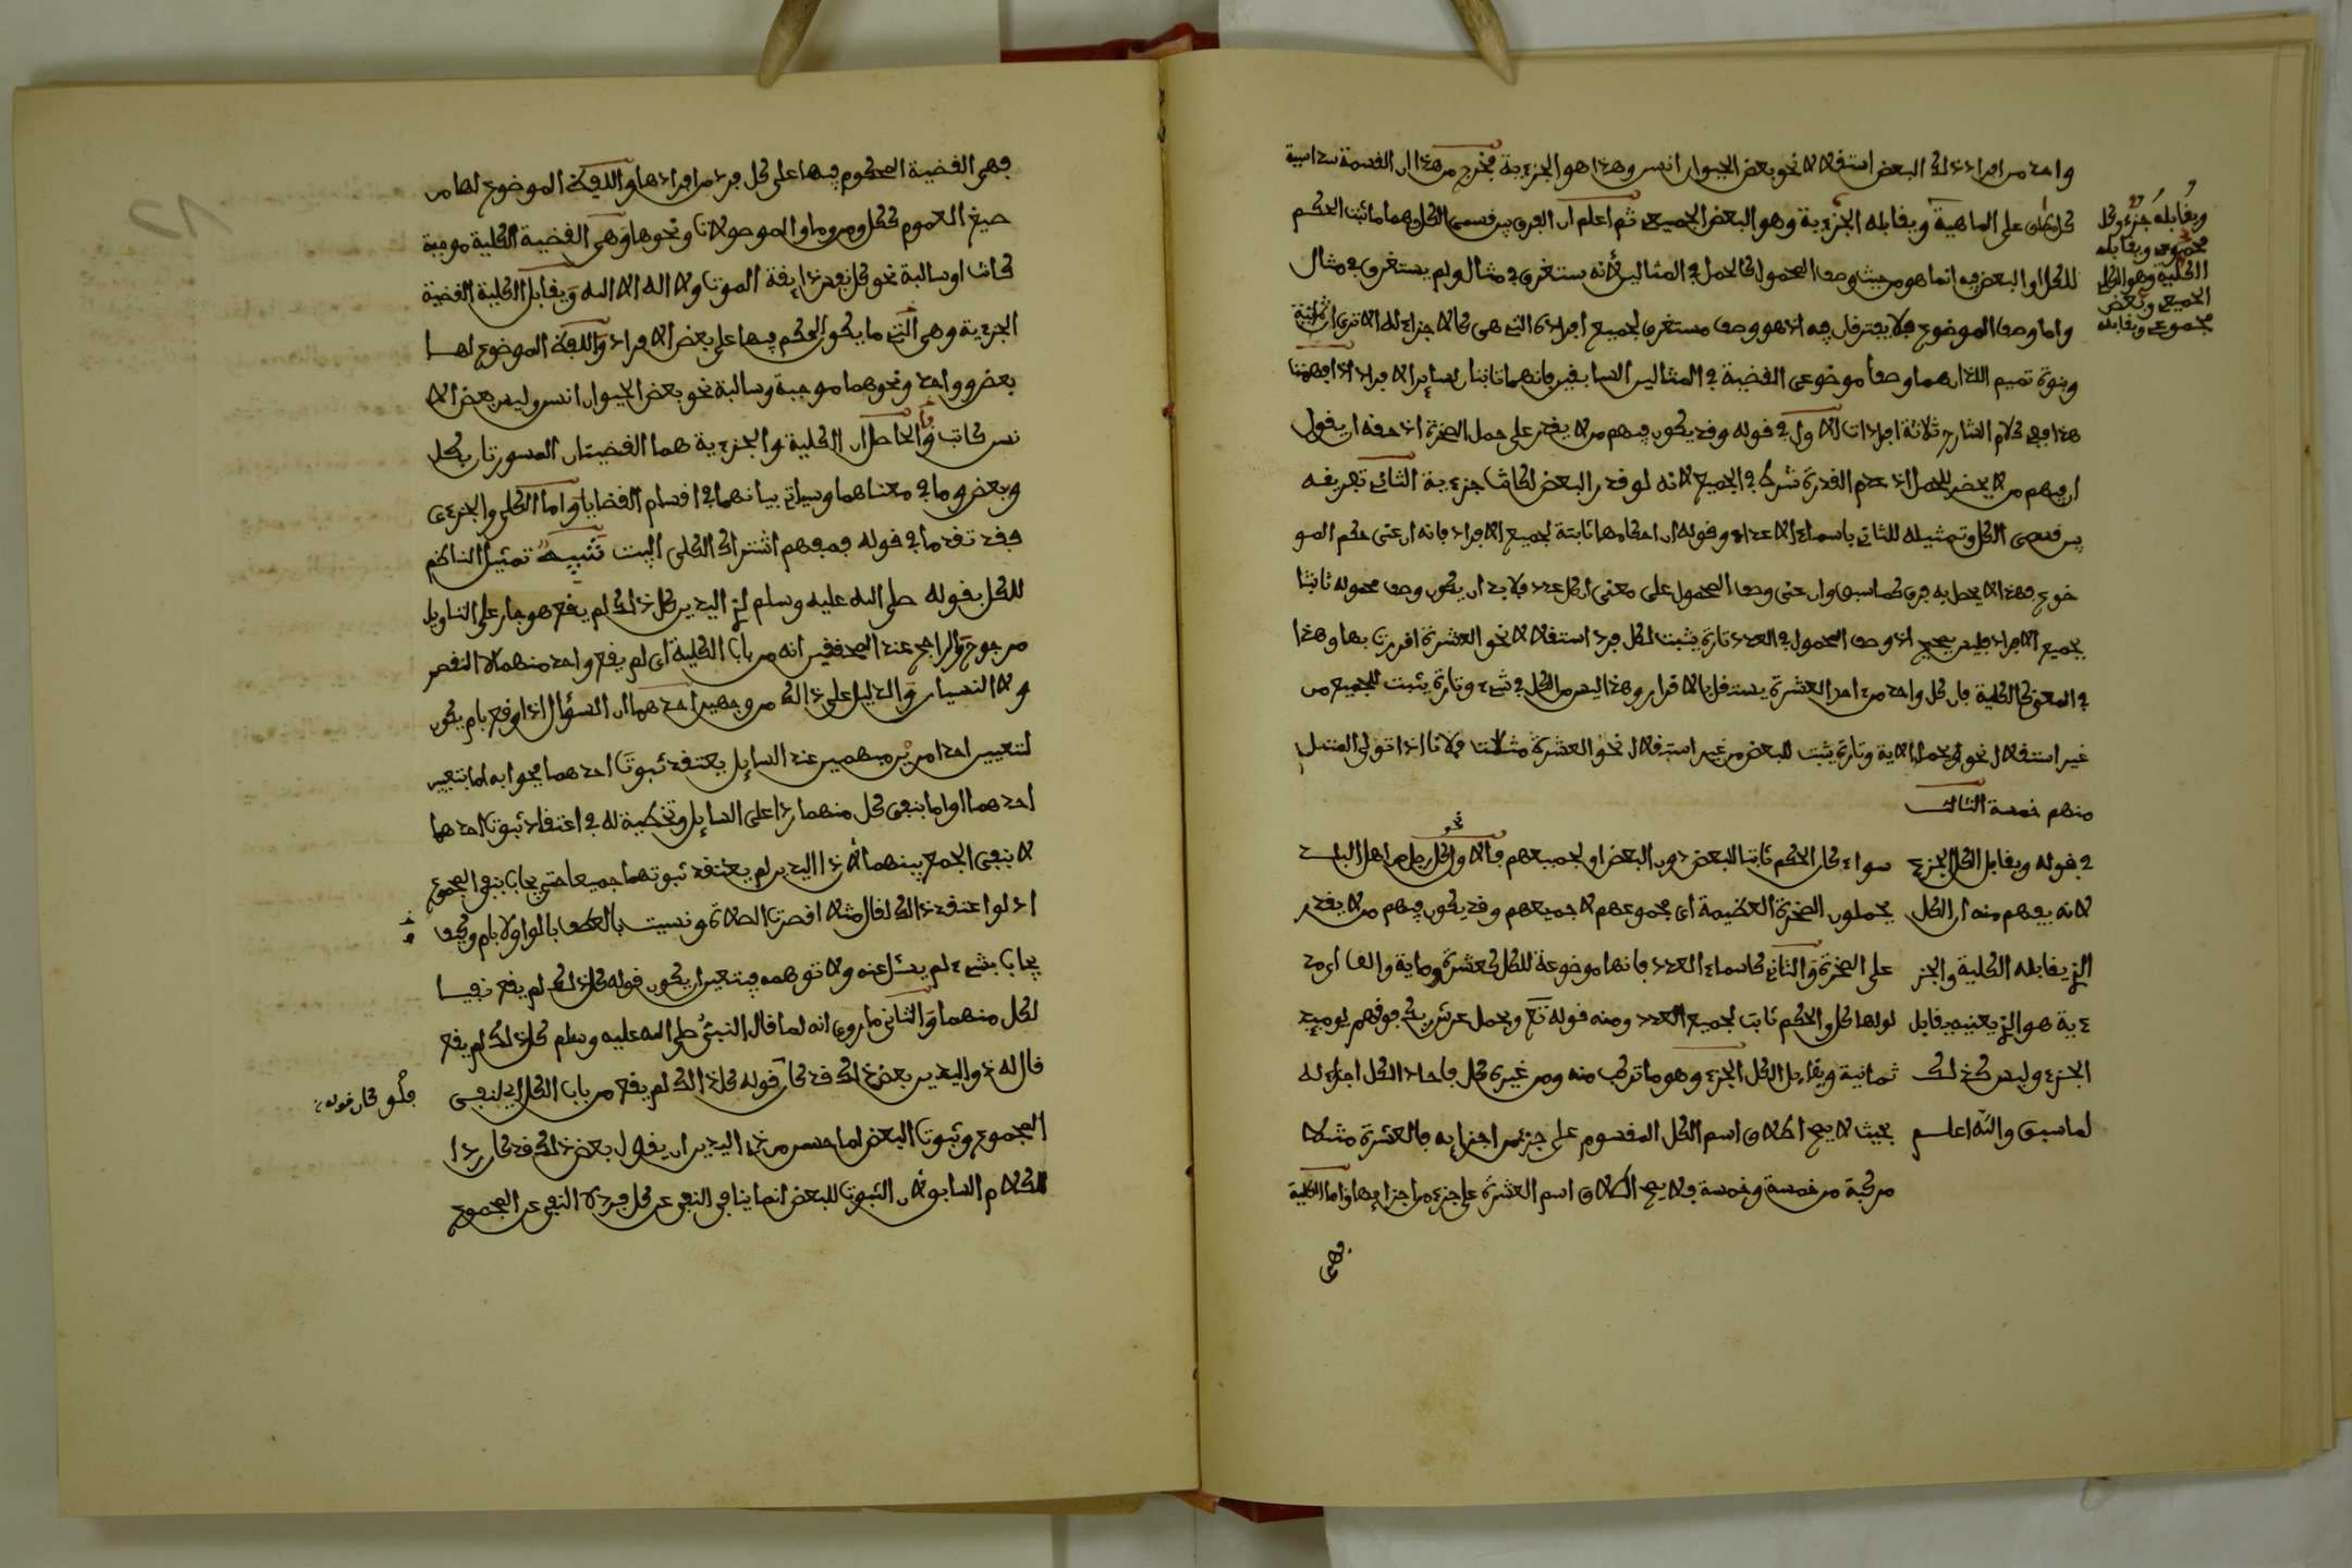 واحد من افراد ذلك البعض استقلالا نحو بعض الحيوان انسن وهذا هو الجزءية فخرج من هذا ان القسمة سداسية
على الماهية ويقابله الجزءية وهو البعض الجميعي ثم اعلم ان الفرق بين قسمي الكل وهما ما ثبت الحكم
للكل او البعض فيه انما هو من حيث وصف المحمول كالحمل في المثالين لأنه يستغرق في مثال ولم يستغرق في مثال
واما وصف الموضوع فلا يفترقان فيه اذ هو وصف مستغرق لجميع افراده التي هي كالاجزاء له الا ترى ان ثمانية
وبنوة تميم اللذان هما وصفا موضوعي القضية في المثالين السابقين فانهما ثابتان لساير الافراد اذا فهمت
هذا ففي كلام الشارح ثلاثة ايرادات الاول في قوله وقد يكون فيهم من لا يقدر على حمل الصخرة اذ حقه ان يقول
ان فيهم من لا يحضر للحمل اذ عدم القدرة شرك في الجميع لانه لو قدر البعض لكانت جزءية الثاني تفريقه
بين قسمي الكل وتمثيله للثاني باسماء الاعداد وقوله ان احكامها ثابتة لجميع الافراد فانه ان عنى حكم المو
ضوع فهذا لا يحصل به فرق كما سبق وان عنى وصف المحمول على معنى ان كل عدد فلا بد ان يكون وصف محموله ثابتا
لجميع الافراد فليس بصحيح اذ وصف المحمول في العدد تارة يثبت لكل فرد استقلالا نحو العشرة افررت بها وهذا
في المعنى كالكلية فان كل واحد من احد العشرة يستقل بالاقرار وهذا ليس من الكل في شيء وتارة يثبت للجميع من
غير استقلال نحو ويحمل الاية وتارة يثبت للبعض من غير استقلال نحو العشرة مثلا قتلت فلانا اذا تولى القتل
منهم خمسة الثالث
في قوله ويقابل الكل الجزء
لانه يفهم منه ان الكل
الذي يقابله الكلية والجز
ءية هو الذي يعنيه يقابل
الجزء وليس كذلك
لما سبق والله اعلم
سواء كان الحكم ثابتا للبعض دون البعض او لجميعهم فالاول كل رجل من اهل البلد
نحو
يحملون الصخرة العظيمة اى مجموعهم لا جميعهم وقد يكون فيهم من لا يقدر
على الصخرة والثاني كاسماء العدد فانها موضوعة للكل كعشرة وماية والف
كل والحكم ثابت لجميع العدد ومنه قوله تع ويحمل عرش ربك فوقهم يوميذ
ثمانية ويقابل الكل الجزء وهو ما تركب منه ومن غيره كل فاحاد الكل اجزاء له
بحيث لا يصح اطلاق اسم الكل المقسوم على جزء من اجزايه فالعشرة مثلا
مركبة من خمسة وخمسة فلا يصح اطلاق اسم العشرة على جزء من اجزايها واما الكلية
فهي
ويقابله جزء وكل
مجموعي ويقابله
الكلية وهو الكل
الجميعي وبعض
مجموعي ويقابله
فهي القضية المحكوم فيها على كل فرد من افرادها واللفظ الموضوع لها من
صيغ العموم ككل ومن وما والموصولات ونحوها وهي القضية الكلية موجبة
كانت او سالبة نحو كل نفس ذايقة الموت ولا اله الا الله ويقابل الكلية القضية
الجزءية وهي التي ما يكون الحكم فيها على بعض الافراد واللفظ الموضوع لها
بعض وواحد ونحوهما موجبة وسالبة نحو بعض الحيوان انسن وليس بعض الا
نسن كاتب فالحاصل ان الكلية والجزءية هما القضيتان المسورتان بكل
وبعض وما في معناهما وسياتي بيانهما في اقسام القضايا واما الكلي والجزءي
فقد تقدما في قوله فمفهم اشتراك الكلي البيت تنبيه تمثيل الناظم
للكل بقوله صلى الله عليه وسلم لذي اليدين كل ذلك لم يقع هو جار على التاويل
مرجوح والراجح عند المحققين انه من باب الكلية اى لم يقع واحد منهما لا القصر
ولا النسيان والدليل على ذلك من وجهين احدهما ان السؤال اذا وقع بام يكون
لتعيين احد امرين مبهمين عند السايل يعتقد ثبوت احدهما فجوابه اما بتعيين
احدهما او اما بنفي كل منهما ردا على السايل وتخطية له في اعتقاد ثبوت احدهما
لا بنفي الجمع بينهما لأن ذا اليدين لم يعتقد ثبوتهما جميعا حتى يجاب بنفي المجموع
اذ لو اعتقد ذلك لقال مثلا اقصرت الصلاة ونسيت بالعطف بالواو لا بام وكيف
يجاب بشيء لم يسئل عنه ولا توهمه فيتعين ان يكون قوله كل ذلك لم يقع نفيا
لكل منهما والثاني ما روى انه لما قال النبي صلى الله عليه وسلم كل ذلك لم يقع
قال له ذو اليدين بعض ذلك قد كان قوله كل ذلك لم يقع من باب الكل اى لنفي
فلو كان قوله
المجموع وثبوت البعض لما حسن من ذي اليدين ان يقول بعض ذلك قد كان ردا
للكلام السابق لان الثبوت للبعض انما ينافي النفي عن كل فرد لا النفي عن المجموع